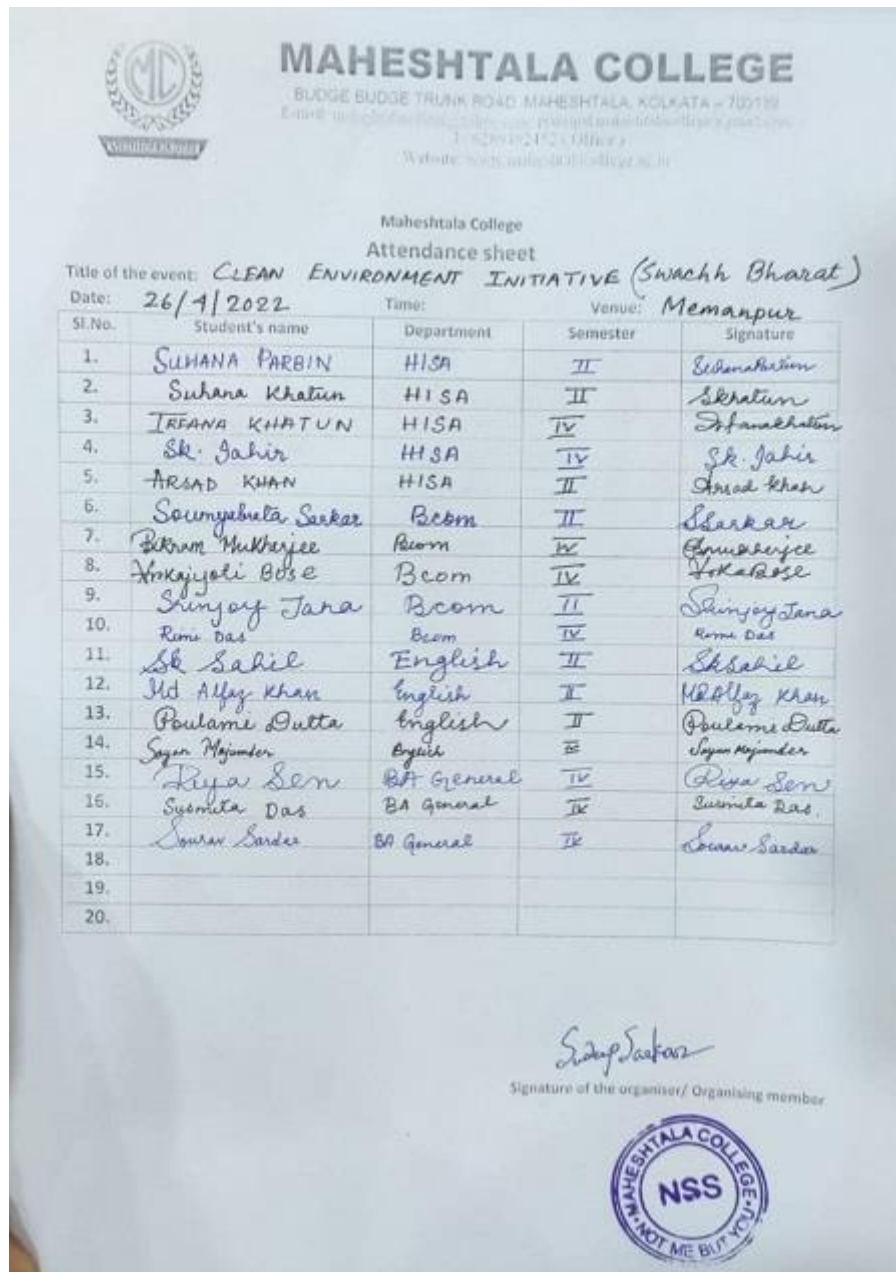 MC
MAHESHTALA COLLEGE
BUDGE BUDGE TRUNK ROAD, MAHESHTALA, KOLKATA – 700139
Maheshtala College
Attendance sheet
Title of the event: CLEAN ENVIRONMENT INITIATIVE (Swachh Bharat)
Date: 26/4/2022 Time: Venue: Memanpur
Sl.No. Student's name Department Semester Signature
1. SUHANA PARBIN HISA II
2. Suhana Khatun HISA II Skhatun
3. IRFANA KHATUN HISA IV Irfanakhatun
4. Sk. Jahir HISA IV Sk. Jahir
5. ARSAD KHAN HISA II Arsad Khan
6. Soumyabrata Sarkar Bcom II SSarkar
7. Bikram Mukherjee Bcom IV Bmukherjee
8. Bose Bcom IV
9. Srinjoy Jana Bcom II Srinjoy Jana
10. Rimi Das Bcom IV Rimi Das
11. Sk Sahil English II Sk Sahil
12. Md Alfaz Khan English II Md Alfaz Khan
13. Poulame Dutta English II Poulame Dutta
14. Sayan Majumder English Sayan Majumder
15. Riya Sen BA General IV Riya Sen
16. Susmita Das BA General IV Susmita Das.
17. Sourav Sardar BA General IV Sourav Sardar
18.
19.
20.
Signature of the organiser/ Organising member
MAHESHTALA COLLEGE
NSS
NOT ME BUT YOU